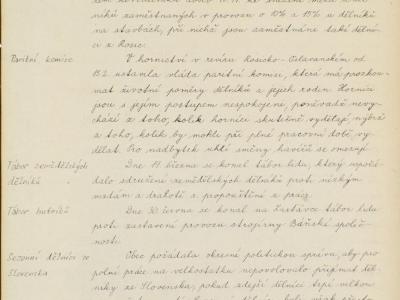 níků zaměstnaných v provozu o 10% a 15% u dělníků
na stavbách, při nichž jsou zaměstnáne také dělní-
ci z Rosic.
Paritní komise
V hornictví v revíru Rosicko-Oslavanském od
15.2. ustavila vláda paritní komisi, která má prozkou-
mat životní poměry dělníků a jejich rodin. Horníci
jsou s jejím postupem nespokojeni, poněvadž nevy-
chází z toho, kolik horníci skutečně vydělají nýbrž
z toho, kolik by mohli při plné pracovní době vy-
dělat. Pro nadbytek uhlí směny havíčů se omezují.
Tábor zemědělských
dělníků
Dne 11. června se konal tábor lidu, který uspořá-
dalo sdružení zemědělských dělníků proti nízkým
mzdám a drahotě a propouštění z práce.
Tábor hutníků
Dne 30. června se konal na Zastávce tábor lidu
proti zastavení provozu strojírny Báňské společ-
nosti.
Sezonní dělníci ze
Slovenska
Obec požádala okresní politickou správu, aby pro
polní práce na velkostatku nepovolovalo přijímat děl-
níky ze Slovenska, pokud zdejší dělníci trpí velkou